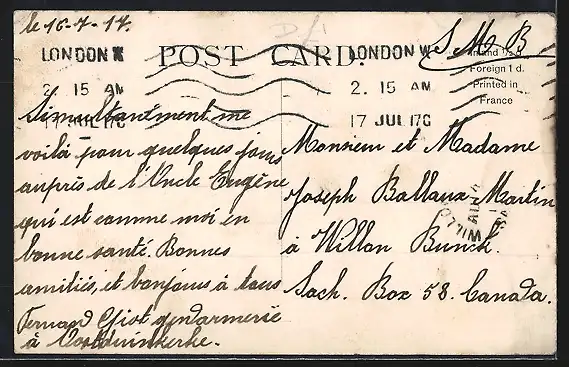 le 16-7-17.
S M B
POST CARD.
LONDON W
2. 15 AM
17 JUL 17
LONDON W
2. 15 AM
17 JUL 17
Inland ½ d
Foreign 1 d.
Printed in
France
Simultanément me
voilà pour quelques jours
auprès de l'Oncle Eugène
qui est comme moi en
bonne santé. Bonnes
amitiés, et bonjours à tous
Fernand gendarmerie
à Oostduinkerke.
Monsieur et Madame
Joseph Martin
à Willon Bunch.
Sach. Box 58. Canada.